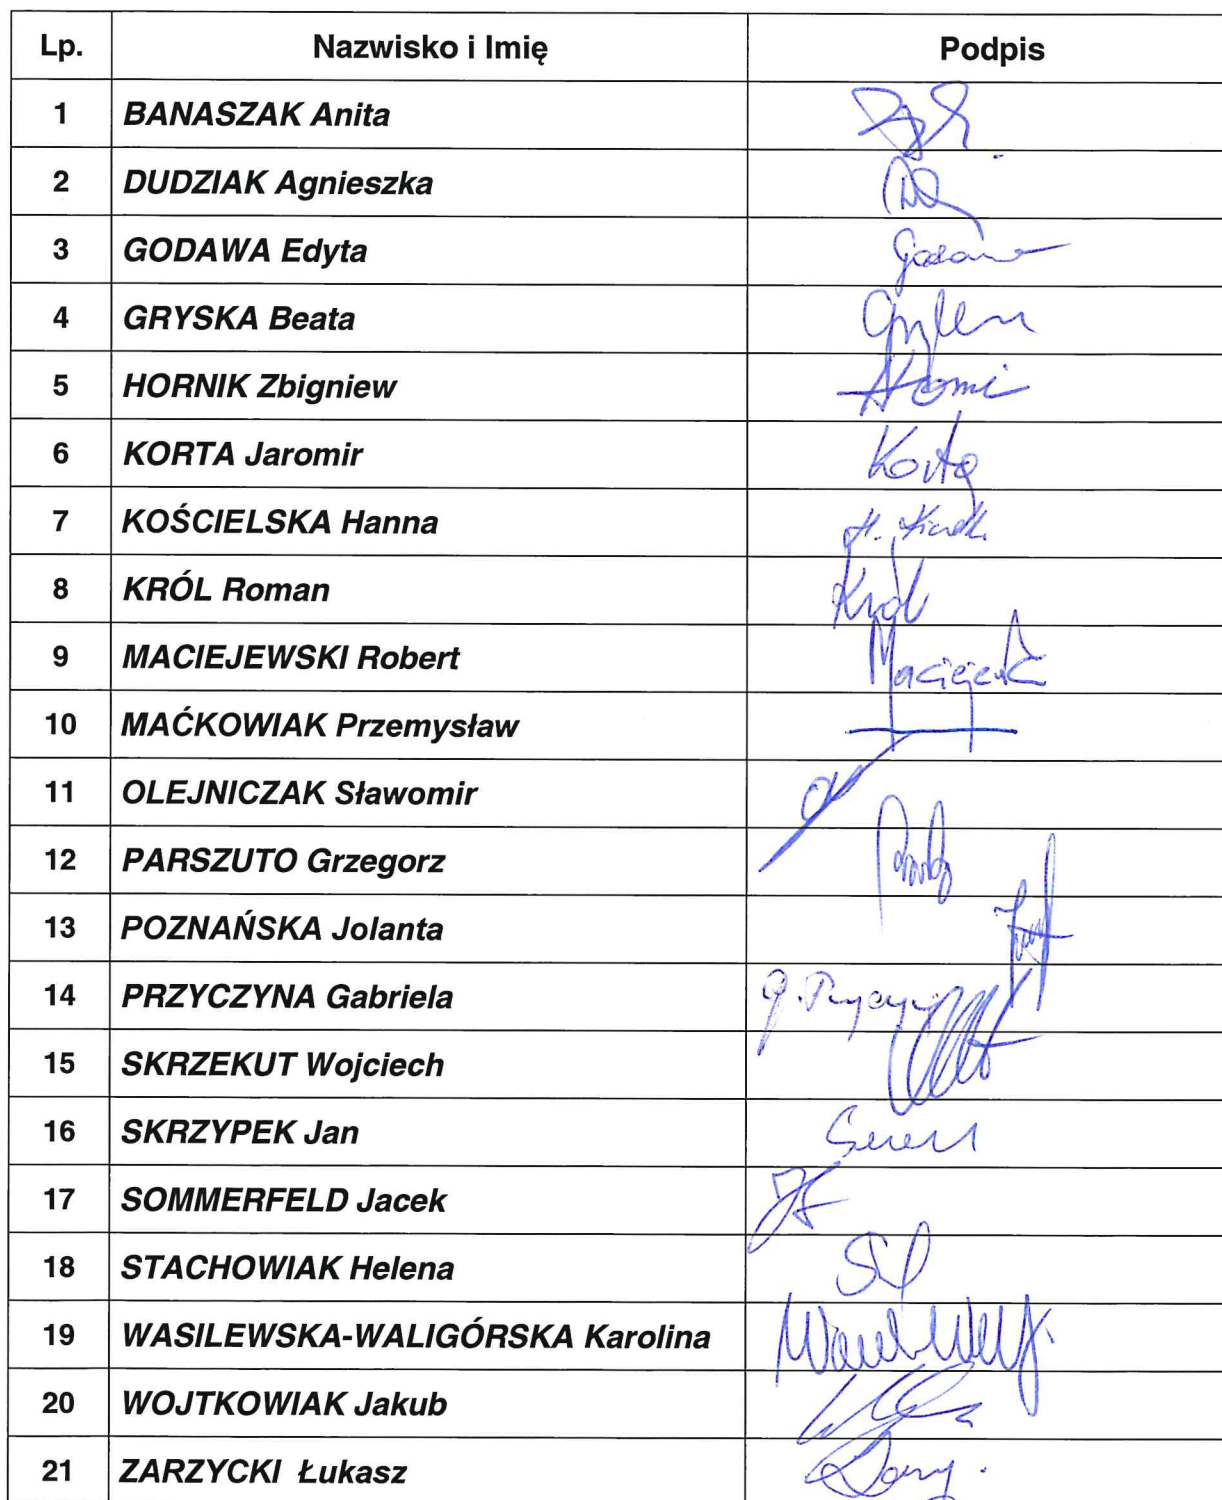 Lp. Nazwisko i Imię Podpis
1 BANASZAK Anita
2 DUDZIAK Agnieszka
3 GODAWA Edyta
4 GRYSKA Beata
5 HORNIK Zbigniew
6 KORTA Jaromir Korta
7 KOŚCIELSKA Hanna
8 KRÓL Roman Król
9 MACIEJEWSKI Robert
10 MAĆKOWIAK Przemysław
11 OLEJNICZAK Sławomir
12 PARSZUTO Grzegorz
13 POZNAŃSKA Jolanta
14 PRZYCZYNA Gabriela
15 SKRZEKUT Wojciech
16 SKRZYPEK Jan
17 SOMMERFELD Jacek
18 STACHOWIAK Helena
19 WASILEWSKA-WALIGÓRSKA Karolina
20 WOJTKOWIAK Jakub
21 ZARZYCKI Łukasz